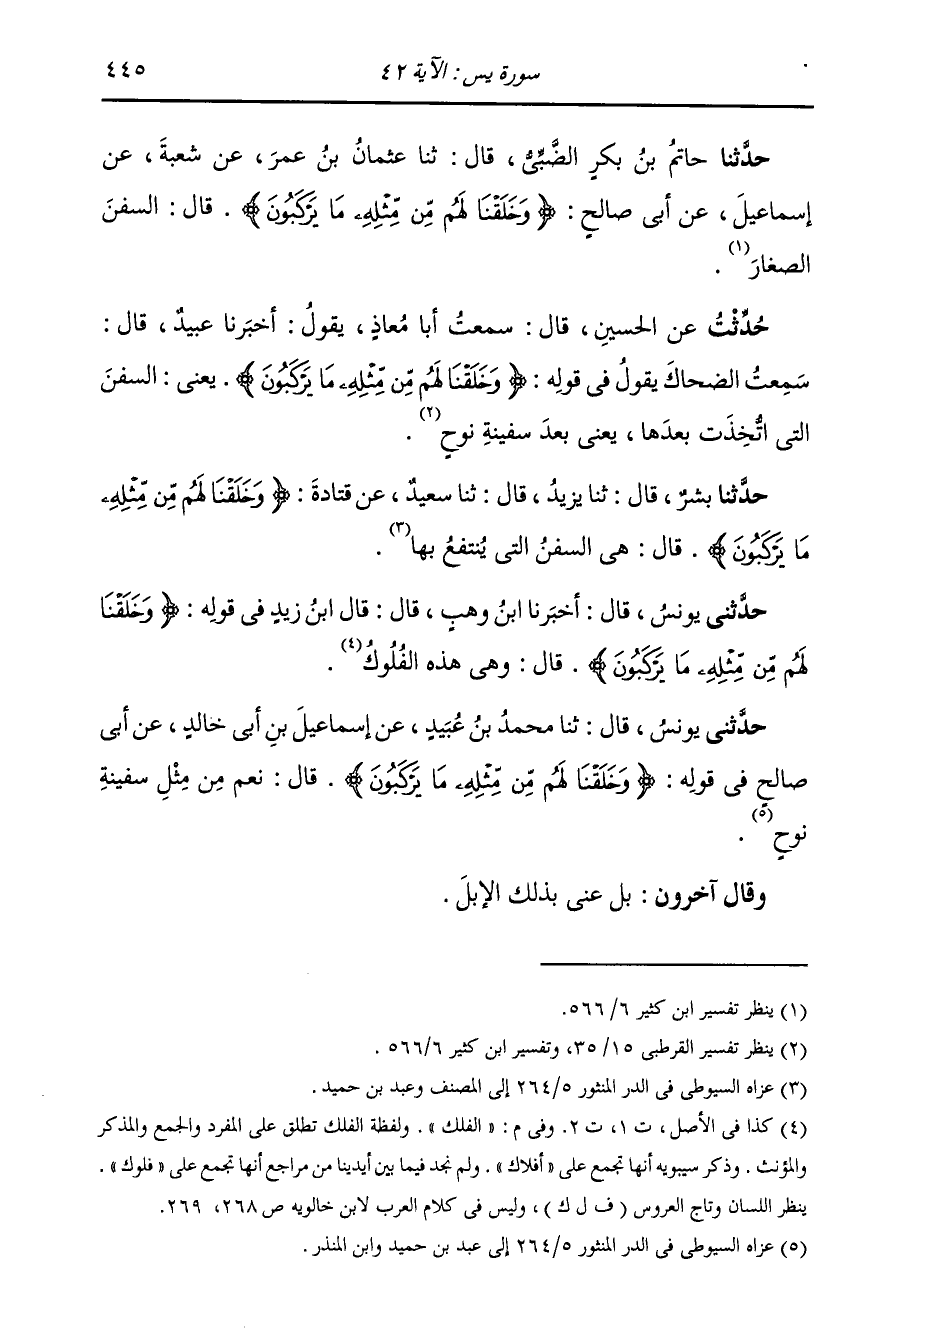 سورة يس : الآية ٤٢
٤٤٥
حدَّثنا حاتمُ بنُ بكرٍ الضَّبِّىُّ ، قال : ثنا عثمانُ بنُ عمرَ ، عن شعبةَ ، عن
إسماعيلَ ، عن أبى صالحٍ : ﴿ وَخَلَقْنَا لَهُم مِّن مِّثْلِهِۦ مَا يَرْكَبُونَ ﴾ . قال : السفنَ
الصغارَ(١) .
حُدِّثْتُ عن الحسينِ ، قال : سمعتُ أبا مُعاذٍ ، يقولُ : أخبَرنا عبيدٌ ، قال :
سَمِعتُ الضحاكَ يقولُ فى قولِه : ﴿ وَخَلَقْنَا لَهُم مِّن مِّثْلِهِۦ مَا يَرْكَبُونَ ﴾ . يعنى : السفنَ
التى اتُّخِذَت بعدَها ، يعنى بعدَ سفينةِ نوحٍ(٢) .
حدَّثنا بشرٌ ، قال : ثنا يزيدُ ، قال : ثنا سعيدٌ ، عن قتادةَ : ﴿ وَخَلَقْنَا لَهُم مِّن مِّثْلِهِۦ
مَا يَرْكَبُونَ ﴾ . قال : هى السفنُ التى يُنتفعُ بها(٣) .
حدَّثنى يونسُ ، قال : أخبَرنا ابنُ وهبٍ ، قال : قال ابنُ زيدٍ فى قولِه : ﴿ وَخَلَقْنَا
لَهُم مِّن مِّثْلِهِۦ مَا يَرْكَبُونَ ﴾ . قال : وهى هذه الفُلُوكُ(٤) .
حدَّثنى يونسُ ، قال : ثنا محمدُ بنُ عُبَيدٍ ، عن إسماعيلَ بنِ أبى خالدٍ ، عن أبى
صالحٍ فى قولِه : ﴿ وَخَلَقْنَا لَهُم مِّن مِّثْلِهِۦ مَا يَرْكَبُونَ ﴾ . قال : نعم مِن مِثْلِ سفينةِ
نوحٍ(٥) .
وقال آخرون : بل عنى بذلك الإبلَ .
(١) ينظر تفسير ابن كثير ٦/ ٥٦٦.
(٢) ينظر تفسير القرطبى ١٥/ ٣٥، وتفسير ابن كثير ٥٦٦/٦ .
(٣) عزاه السيوطى فى الدر المنثور ٢٦٤/٥ إلى المصنف وعبد بن حميد .
(٤) كذا فى الأصل، ت ١، ت ٢. وفى م : « الفلك » . ولفظة الفلك تطلق على المفرد والجمع والمذكر
والمؤنث . وذكر سيبويه أنها تجمع على « أفلاك » . ولم نجد فيما بين أيدينا من مراجع أنها تجمع على « فلوك » .
ينظر اللسان وتاج العروس ( ف ل ك ) ، وليس فى كلام العرب لابن خالويه ص ٢٦٨، ٢٦٩.
(٥) عزاه السيوطى فى الدر المنثور ٢٦٤/٥ إلى عبد بن حميد وابن المنذر .